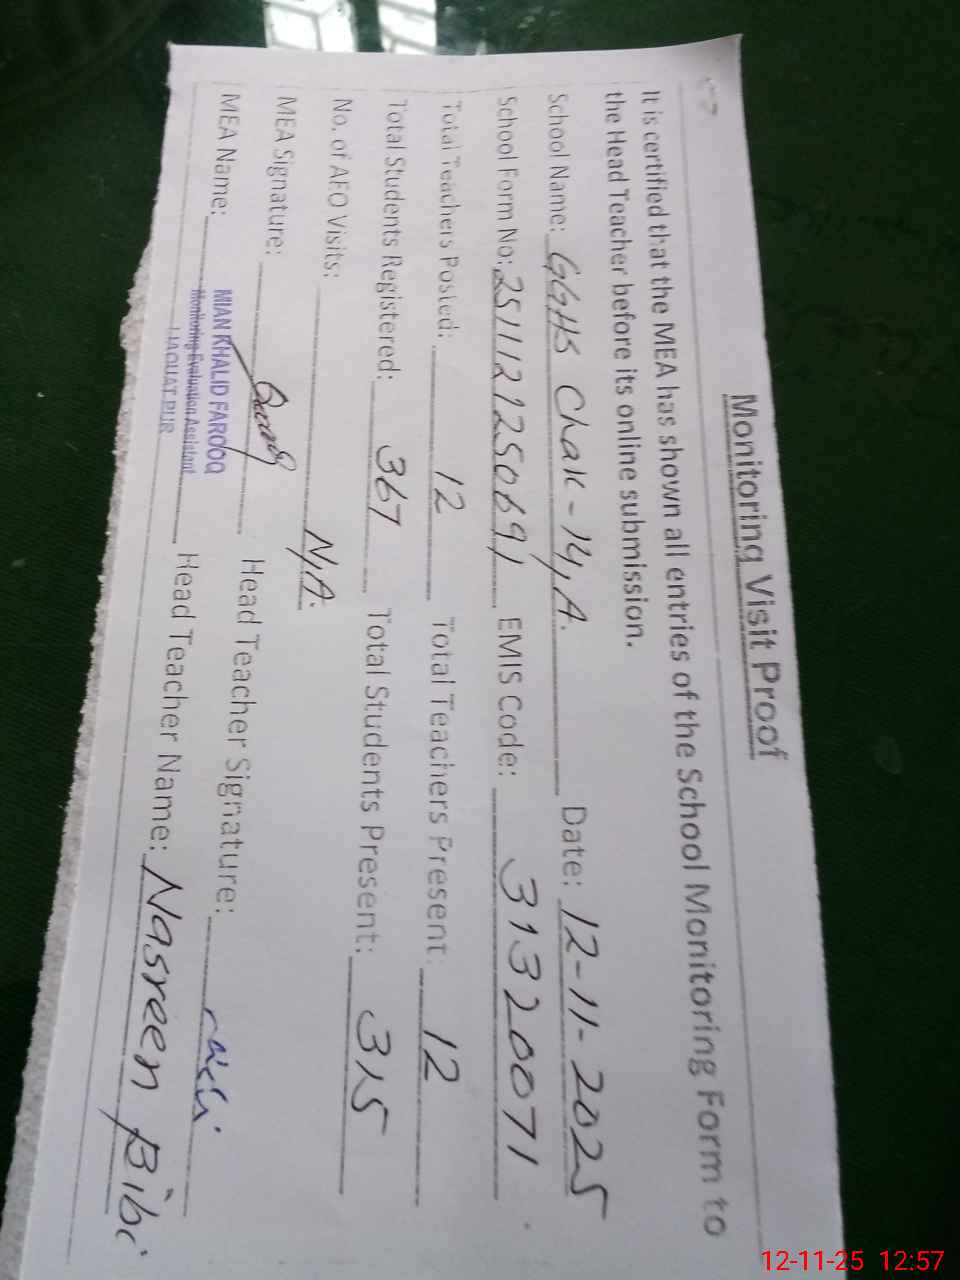 Monitoring Visit Proof
It is certified that the MEA has shown all entries of the School Monitoring Form to
the Head Teacher before its online submission.
School Name: GGHS Chak-14/A. Date: 12-11-2025
School Form No: 2511121250691 EMIS Code: 31320071
Total Teachers Posted: 12 Total Teachers Present: 12
Total Students Registered: 367 Total Students Present: 315
No. of AEO Visits: N/A.
MEA Signature: Head Teacher Signature:
MEA Name: MIAN KHALID FAROOQ Head Teacher Name: Nasreen Bibi
Monitoring Evaluation Assistant
LIAQUAT PUR
12-11-25 12:57